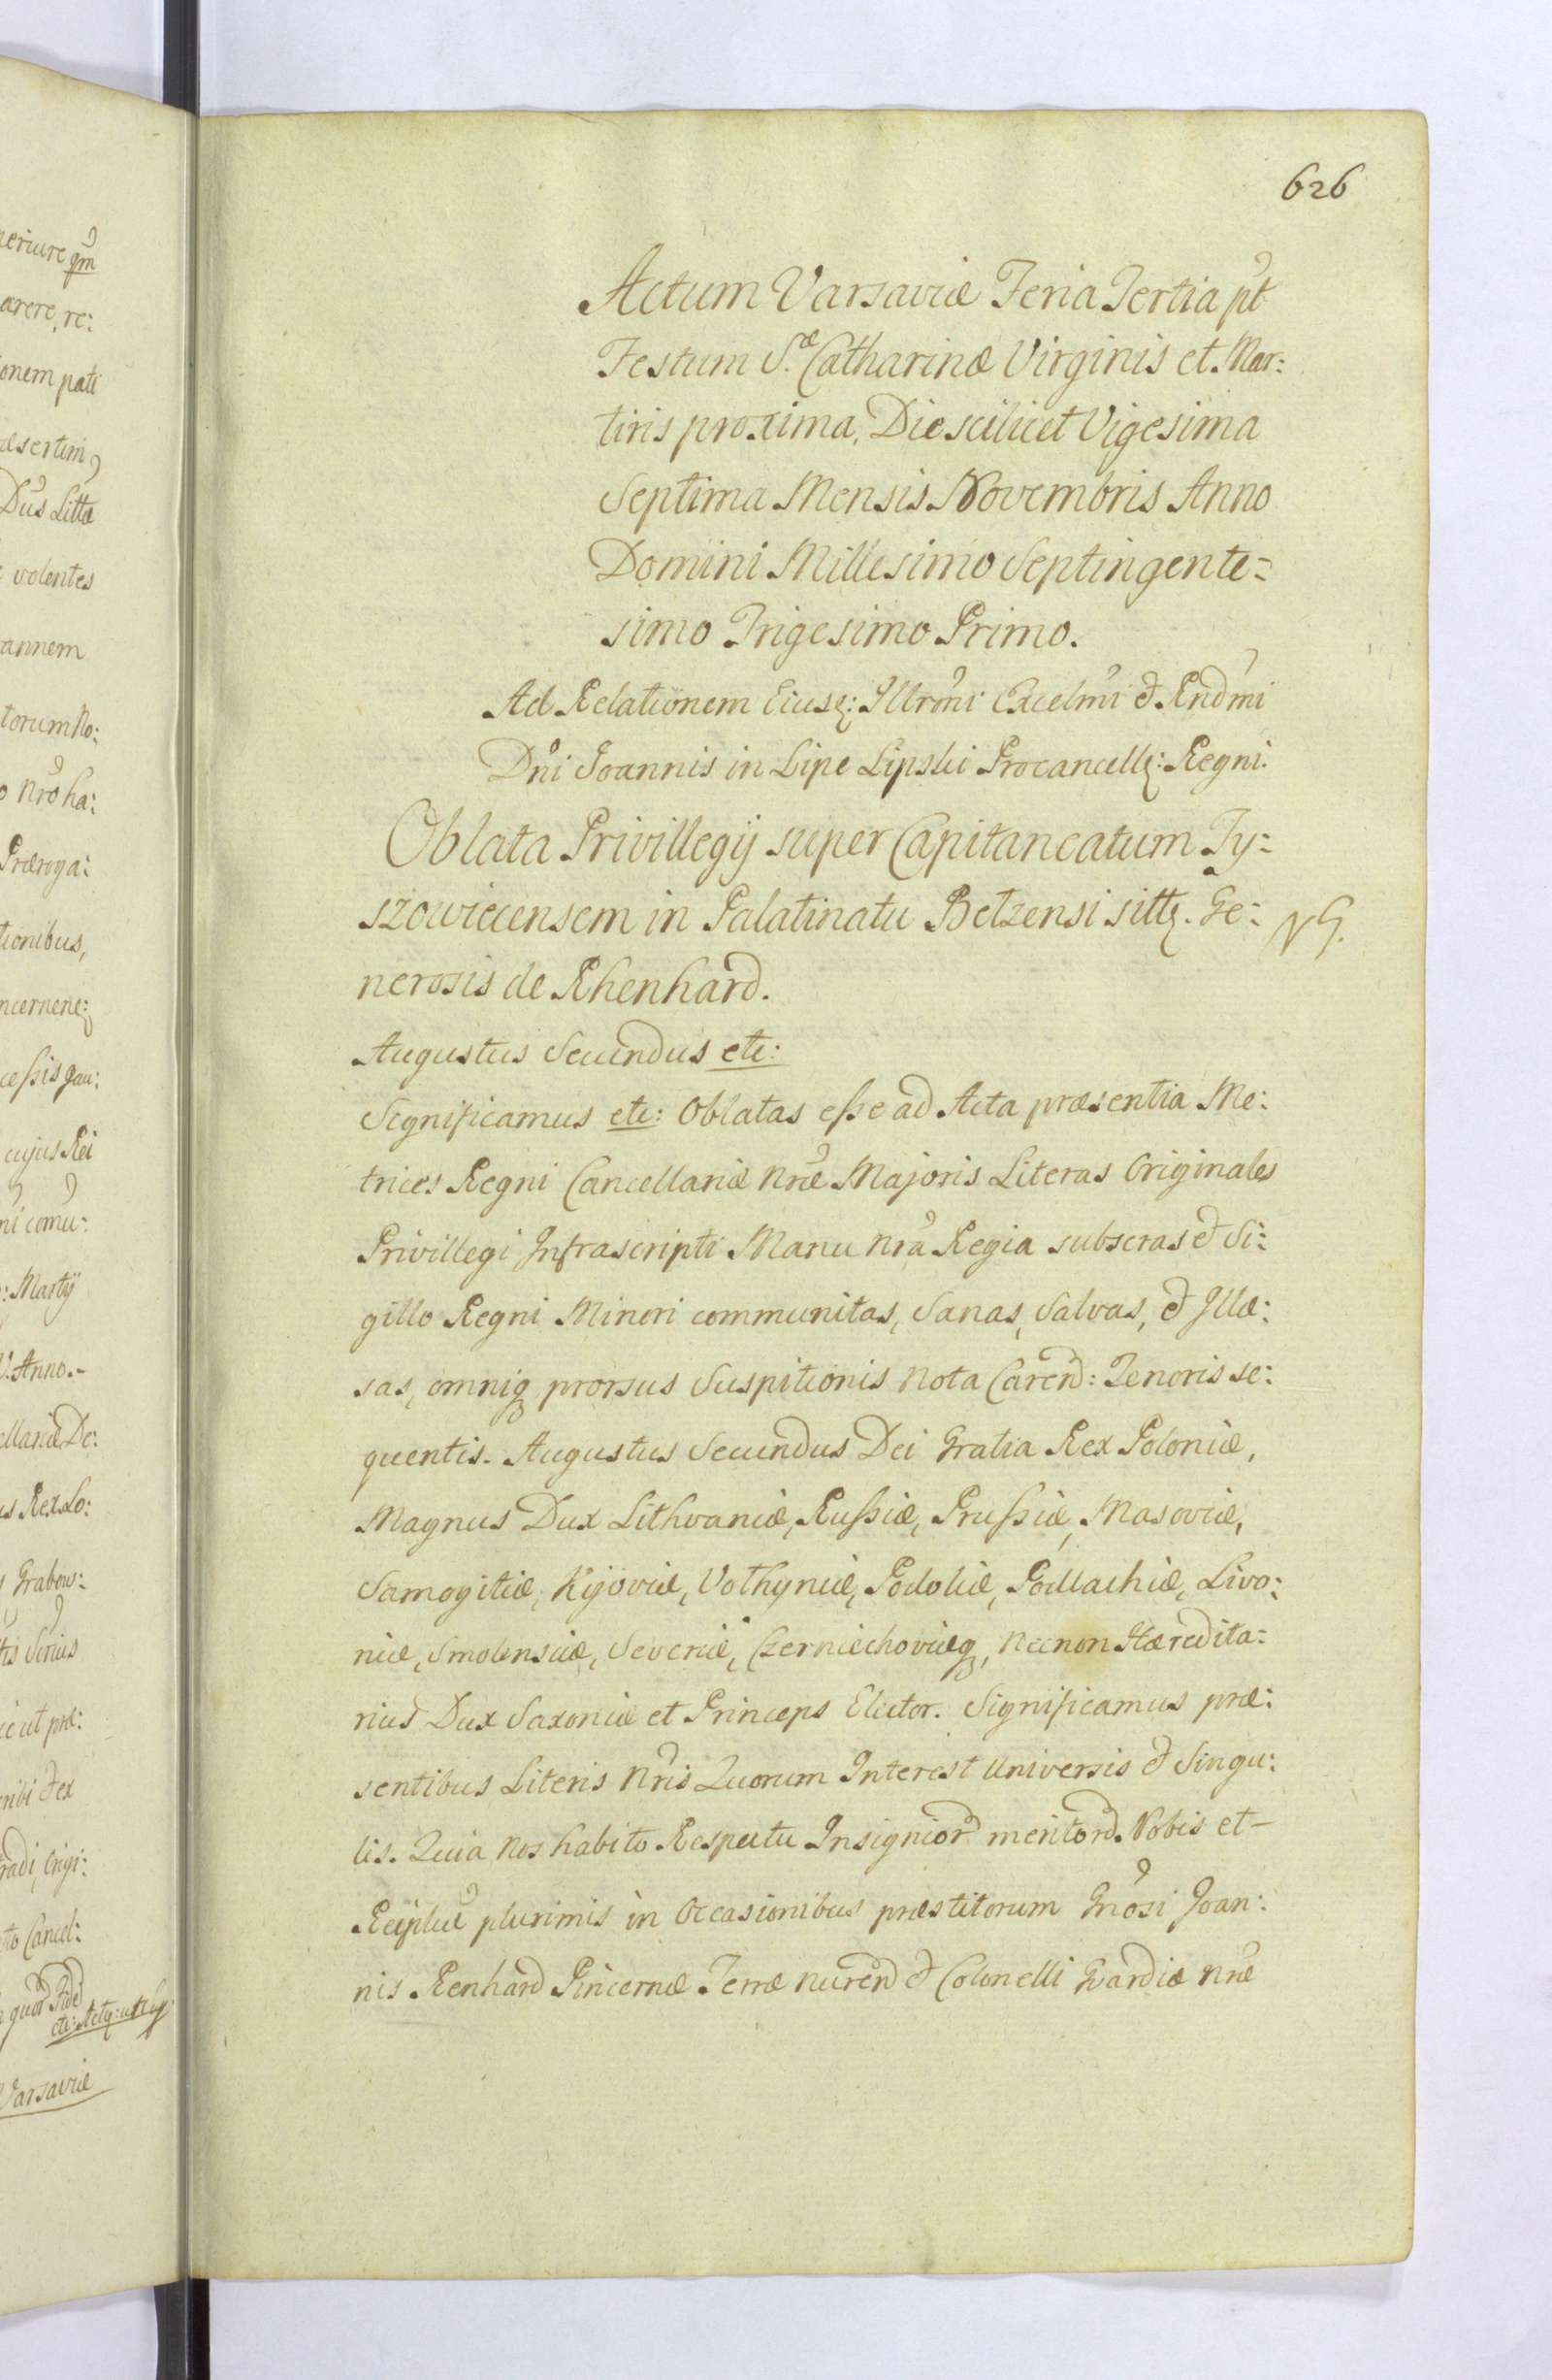 626
Actum Varsaviæ Feria Tertia pt
Festum S.æ Catharinæ Virginis et Mar:
tiris proxima, Die scilicet Vigesima
Septima Mensis Novembris Anno
Domini Millesimo Septingente=
simo Trigesimo Primo.
Ad Relationem Eiusq: Illrmi Excelmi & Rndmi
Dni Joannis in Lipe Lipski Procancellq: Regni.
Oblata Privillegij super Capitaneatum Ty=
szowiecensem in Palatinatu Betzensi sittq. Ge:
nerosis de Rhenhard.
Augustus Secundus etc:
Significamus etc: Oblatas esse ad Acta præsentia Me:
trices Regni Cancellariæ nræ Majoris Literas Originales
Privillegi Infrascripti Manu nra Regia subscras & Si:
gillo Regni Minori communitas, Sanas, Salvas, & Illæ:
sas, omniq prorsus Suspitionis nota Carend: Tenoris se:
quentis. Augustus Secundus Dei Gratia Rex Poloniæ,
Magnus Dux Lithvaniæ, Russiæ, Prussiæ, Masoviæ,
Samogitiæ, Kijoviæ, Volhyniæ, Podoliæ, Podlachiæ, Livo:
niæ, Smolensciæ, Severiæ, Czerniechoviæq, necnon Hæredita:
rius Dux Saxoniæ et Princeps Elector. Significamus præ:
sentibus Literis Nris Quorum Interest Universis & Singu:
lis. Quia Nos habito Respectu Insignior meritor. Nobis et-
Reiplcæ plurimis in Occasionibus præstitorum Gnosi Joan:
nis Renhard Pincernæ Terræ nuren & Colonelli Gvardiæ nræ
onem pati
Dus Litte
volentes
annem
torum No:
o nro ha:
Præroga:
tionibus,
cessis gau:
cujus Rei
ni comu:
: Martij
Anno.-
s Rex Lo:
Grabow:
ti Serius
ic ut præ:
ribi & ex
radi, Origi:
to Cancel:
Varsaviæ